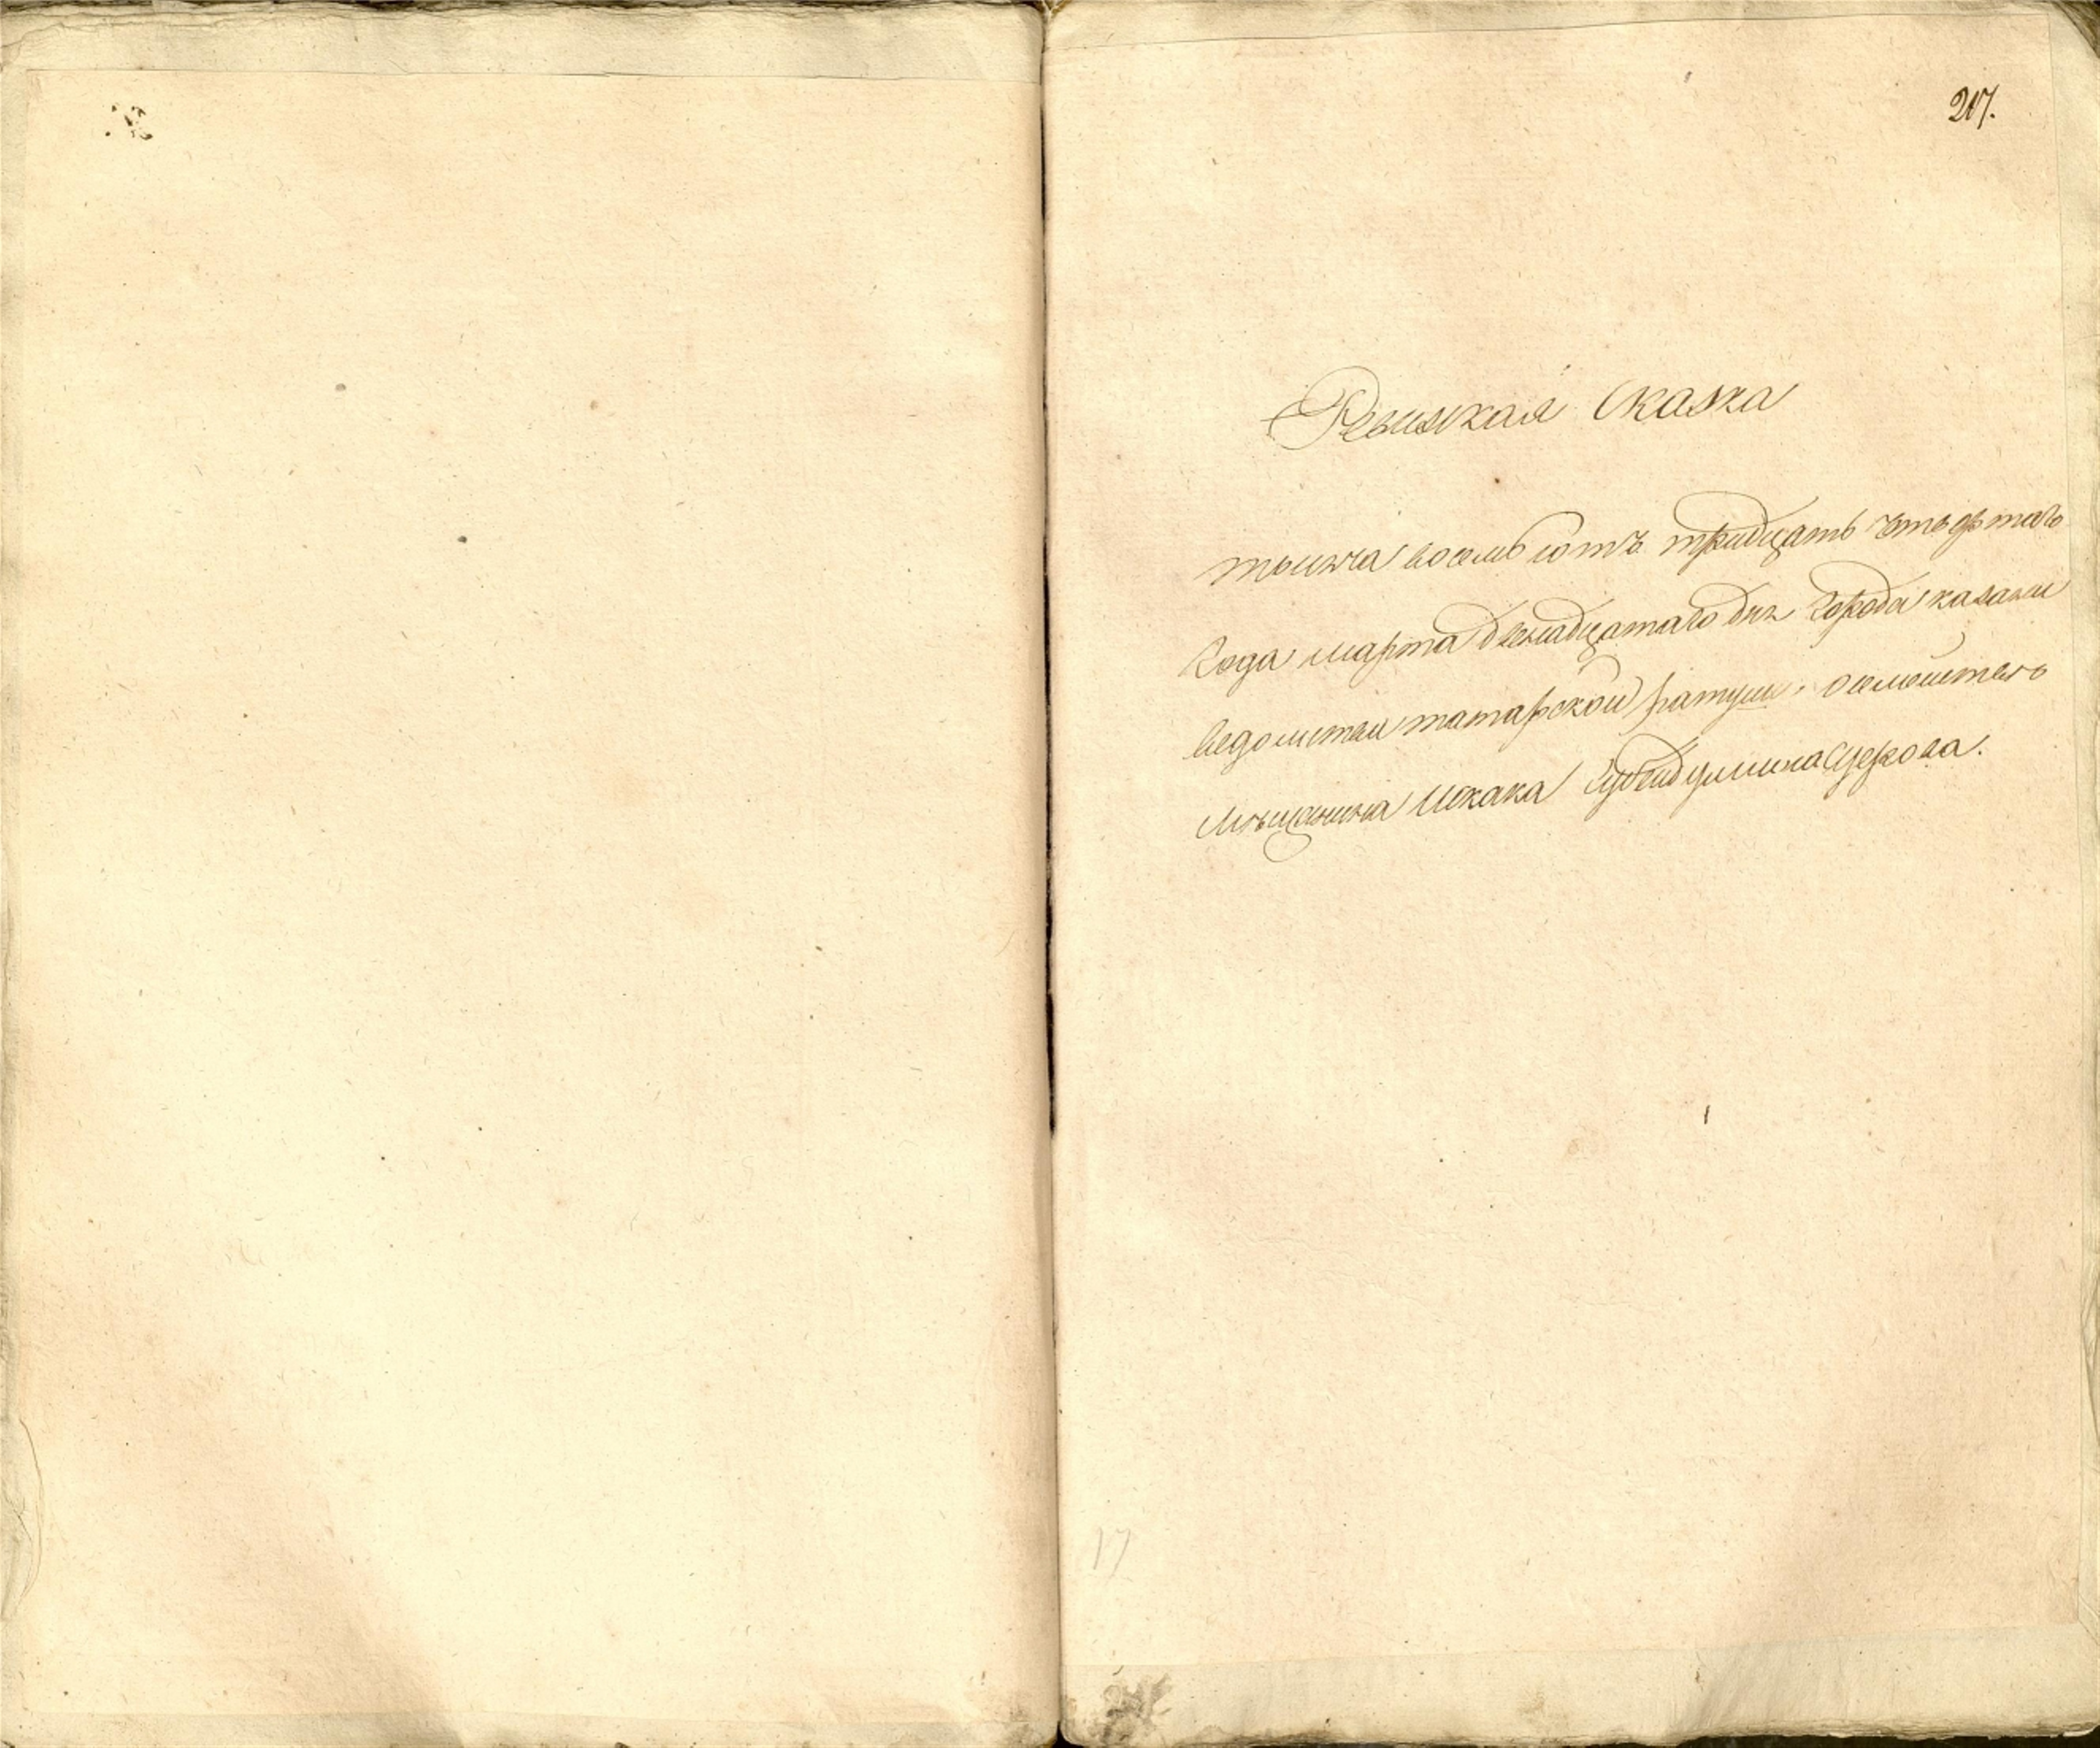 217.
Ревижская Сказка
тысяча восемь сотъ тридцать четвертаго
Года марта двенадцатаго дня Города казани
ведомства татарской ратуши,
Мѣщанина Исхака
17